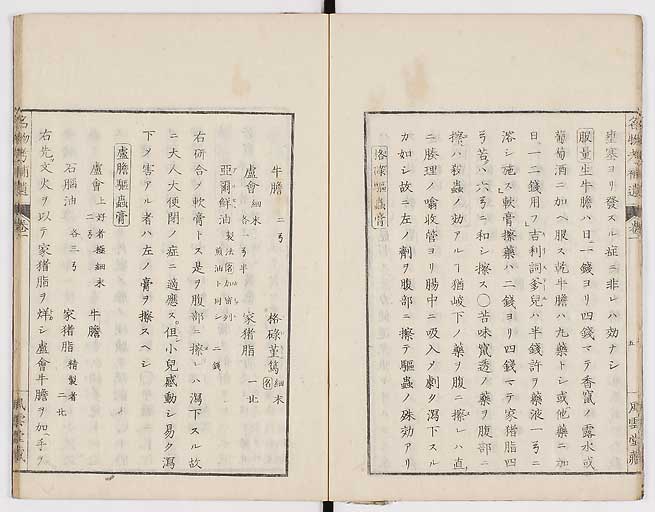 壅塞ヨリ發スル症ニ非レハ効ナシ
服量生牛膽ハ日一錢ヨリ四錢マテ香竄ノ露水或
葡萄酒ニ加ヘ服ス乾牛膽ハ丸藥トシ或他藥ニ加
日一二錢用フ吉利詞爹兒ハ半錢許ヲ藥液一弓ニ
溶シ施ス軟膏擦藥ハ二錢ヨリ四錢マテ家猪脂四
弓若ハ六弓ニ和シ擦ス〇苦味竄透ノ藥ヲ腹部ニ
擦ハ殺蟲ノ効アルヿ猶峻下ノ藥ヲ腹ニ擦レハ直
ニ腠理ノ噏收管ヨリ腸中ニ吸入ノ劇ク瀉下スル
カ如シ故ニ左ノ劑ヲ腹部ニ擦テ驅蟲ノ殊効アリ
驅蟲膏
牛膽 二弓
蘆會 細末
各一弓半
家猪脂 一片
亞爾鮮油
二錢
右研合ノ軟膏トス是ヲ腹部ニ擦レハ瀉下スル故
ニ大人大便閉ノ症ニ適應ス但小兒感動シ易ク瀉
下ノ害アル者ハ左ノ膏ヲ擦スヘシ
蘆膽驅蟲膏
蘆會 上好者極細末 二弓
牛膽
石腦油 各三弓
家猪脂 精製者
右先文火ヲ以テ家猪脂ヲ烊シ蘆會牛膽ヲ加手ヲ
風雲堂藏